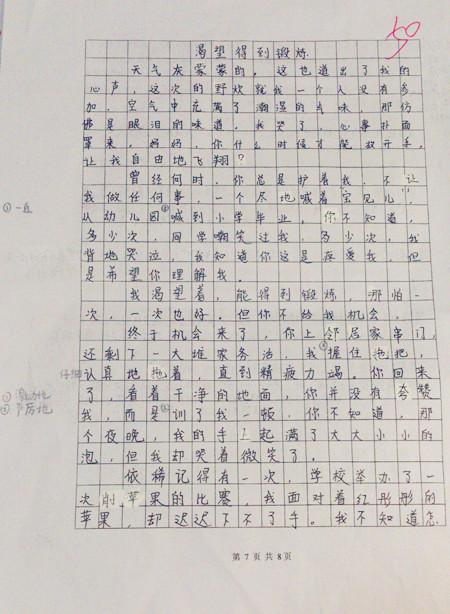 50
渴望得到锻炼
天气灰蒙蒙的，这也道出了我的
心声，这次的野炊就我一个人没有参
加，空气中充满了潮湿的气味，那仿
佛是眼泪的味道，我哭了，心事扑面
罩来，妈妈，你什么时候才能放开手，
让我自由地飞翔？
曾经何时，你总是护着我，不让
我做任何事，一个尽地喊着宝贝儿，
①一直
从幼儿园喊到小学毕业，你不知道，
多少次，同学嘲笑过我，多少次，我
背地哭泣，我知道你这是在爱我，但
是希望你理解我。
我渴望着，能得到锻炼，哪怕一
次，一次也好。但你不给我机会。
终于机会来了，你上邻居家串门，
还剩下一大堆家务活，我握住拖把，
仔细
认真地拖着，直到精疲力竭。你回来
①激动地
了，看着干净的地面，你并没有夸赞
②严厉地
我，而是训了我一顿，你不知道，那
个夜晚，我的手上起满了大大小小的
泡，但我却哭着微笑了。
依稀记得有一次，学校举办了一
次削苹果的比赛，我面对着红彤彤的
苹果，却迟迟下不了手。我不知道怎
第7页共8页